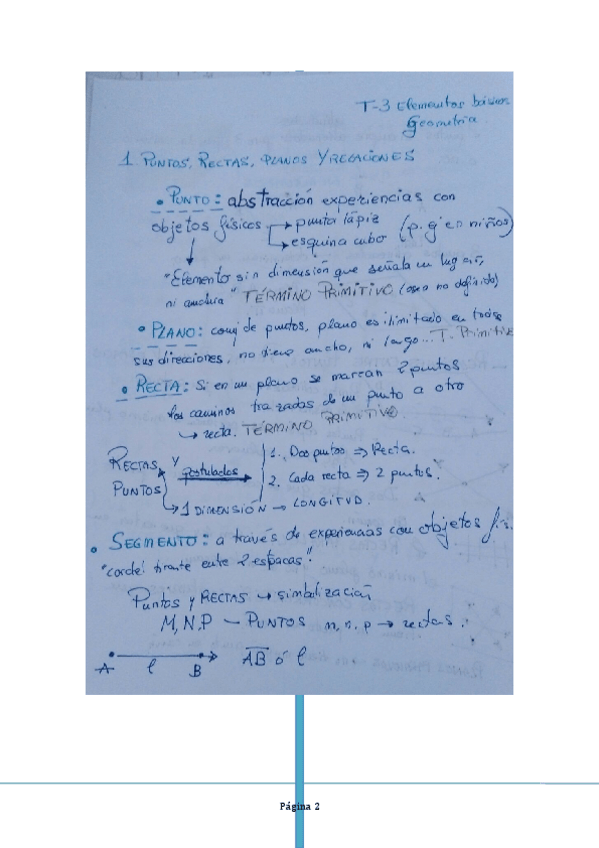 T-3 Elementos básicos
Geometría.
1 PUNTOS, RECTAS, PLANOS Y RELACIONES
• PUNTO: abstracción experiencias con
objetos físicos → punta lápiz
→ esquina cubo (p.g en niños)
"Elemento sin dimensión que señala un lugar,
ni anchura" TÉRMINO PRIMITIVO (osea no definido)
• PLANO: conj de puntos, plano es ilimitado en todas
sus direcciones, no tiene ancho, ni largo... T. Primitivo
• RECTA: Si en un plano se marcan 2 puntos
los caminos trazados de un punto a otro
→ recta. TÉRMINO PRIMITIVO
RECTAS Y PUNTOS postulados → 1. Dos puntos ⇒ Recta.
2. Cada recta ⇒ 2 puntos.
→ 1 DIMENSIÓN → LONGITUD.
• SEGMENTO: a través de experiencias con objetos fís.
"cordel tirante entre 2 estacas".
Puntos y RECTAS → simbolización
M, N, P — PUNTOS m, n, p → rectas.
A l B AB ó l
Página 2